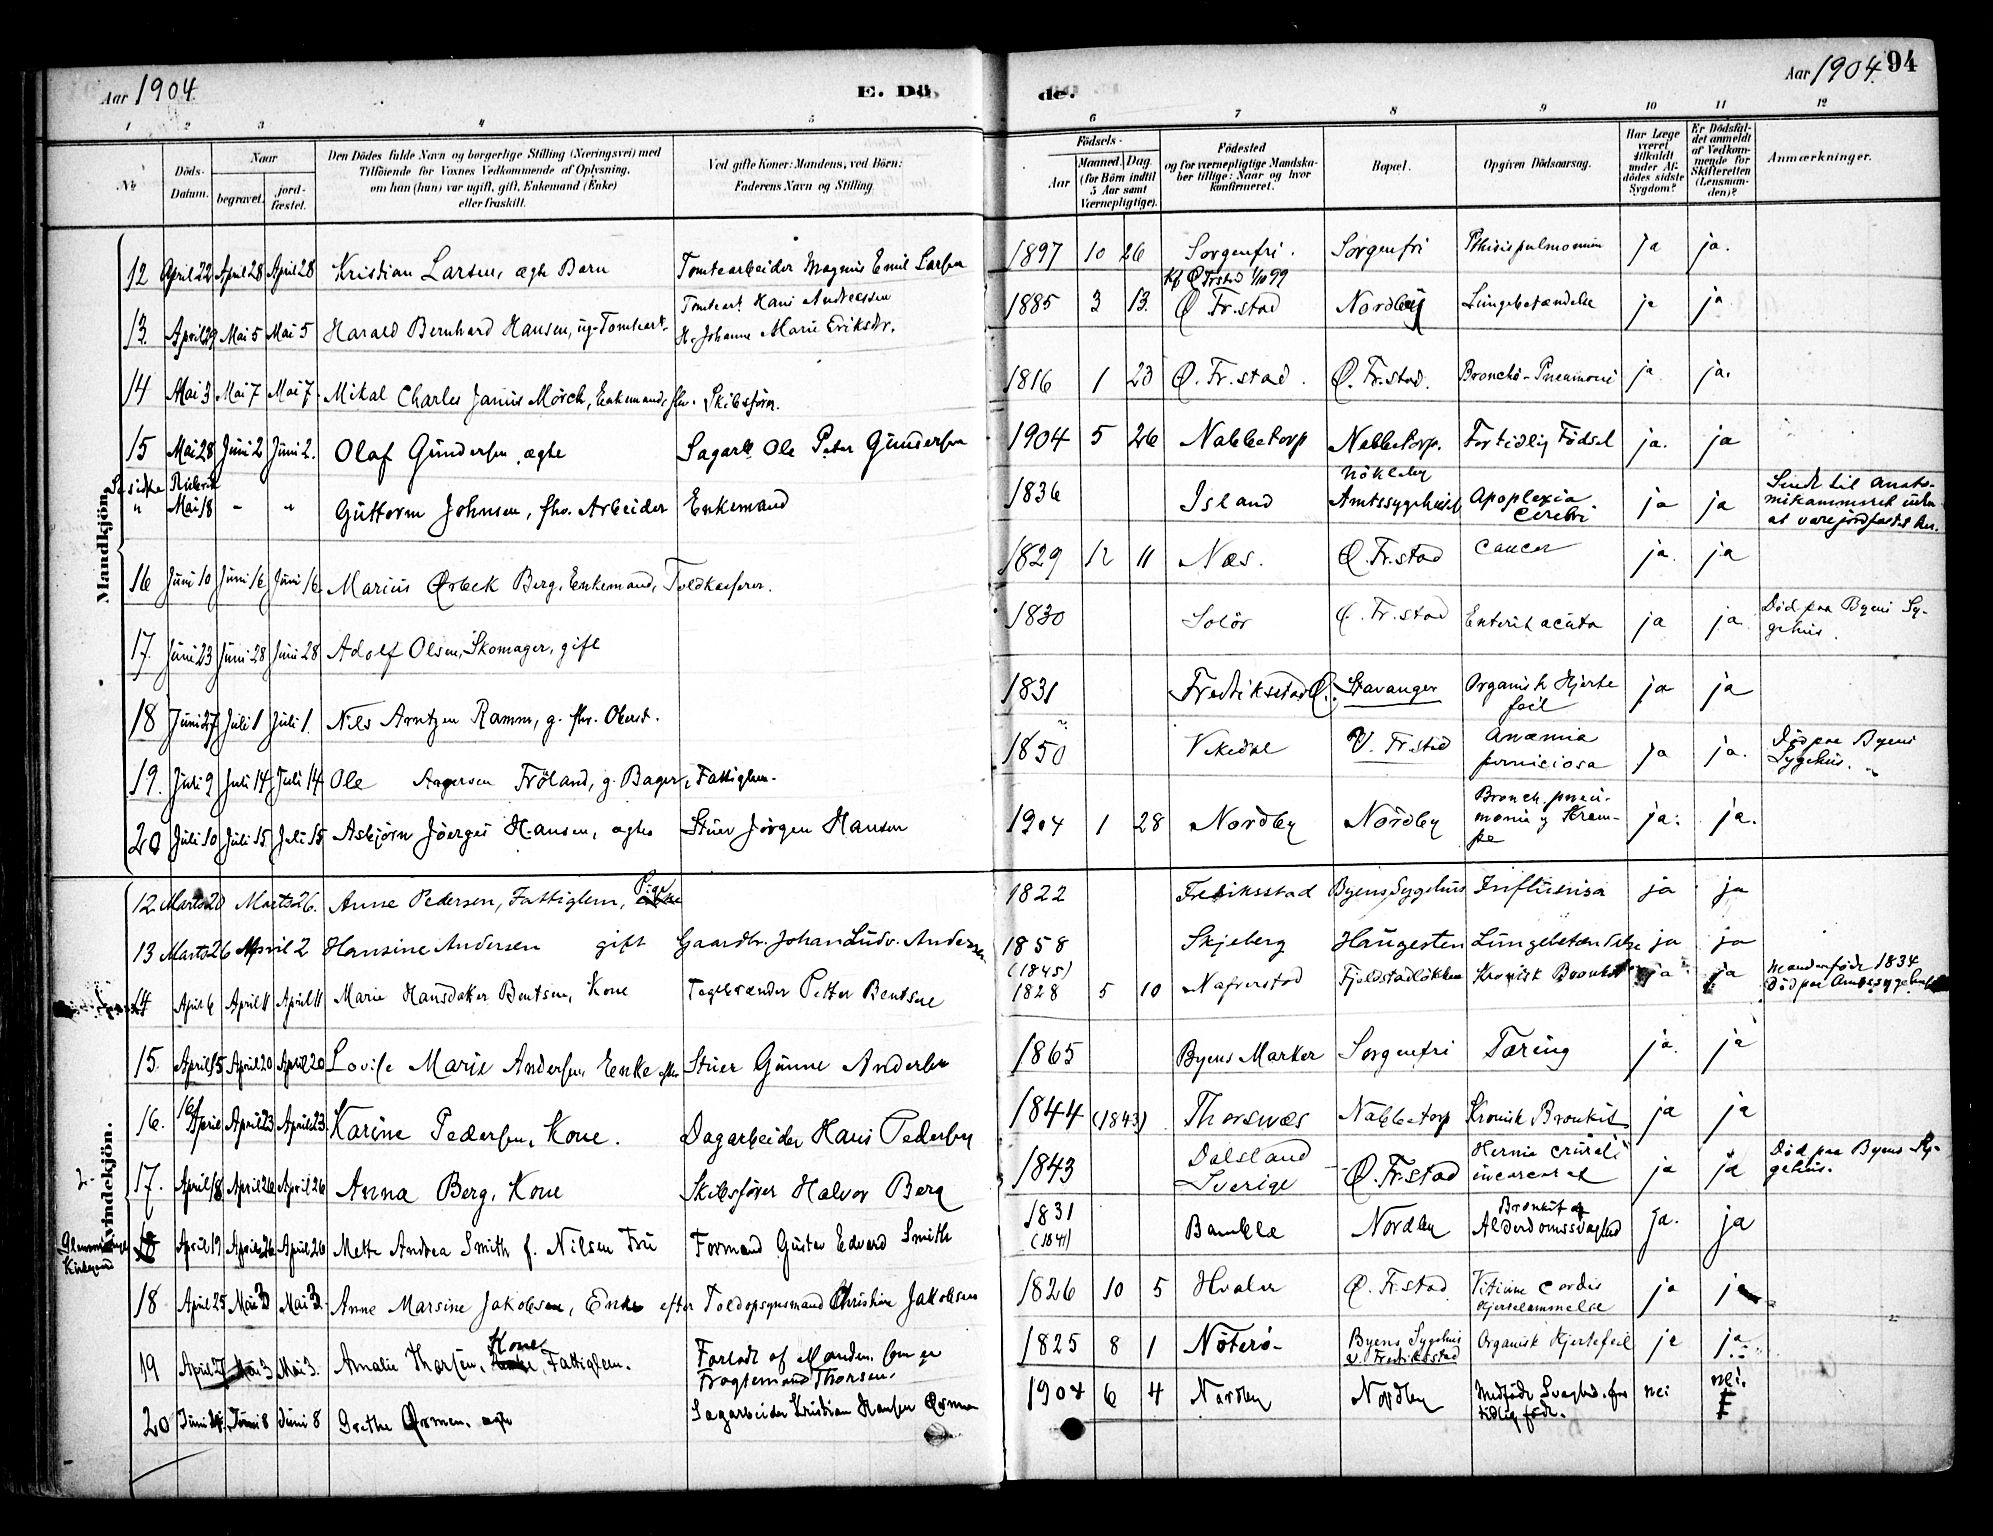 Aar 1904.
E. Dö
de.
Aar 1904. 94
1 2 3 4 5 6 7 8 9 10 11 12
No
Döds-
Datum.
Naar
begravet.
jord-
fæstet.
Den Dödes fulde Navn og borgerlige Stilling (Næringsvei) med
Tilföiende for Voxnes Vedkommende af Oplysning,
om han (hun) var ugift, gift, Enkemand (Enke)
eller fraskilt.
Ved gifte Koner: Mandens, ved Börn:
Faderens Navn og Stilling
Födsels-
Aar
Maaned. Dag.
(for Börn indtil
5 Aar samt
Værnepligtige).
Födested
og for værnepligtige Mandska-
ber tillige: Naar og hvor
konfirmeret.
Bopæl.
Opgiven Dödsaarsag.
Har Læge
været
tilkaldt
under Af-
dödes sidste
Sygdom?
Er Dödsfal-
det anmeldt
af Vedkom-
mende for
Skifteretten
(Lensman-
den)?
Anmærkninger.
Mandkjön.
12 April 22 April 28 April 28 Kristian Larsen, ægte Barn Tomtearbeider Magnus Emil Larsen 1897 10 26 Sorgenfri. Sorgenfri Phtisis pulmonum ja ja.
13. April 29 Mai 5 Mai 5 Harald Bernhard Hansen, ug. Tomteart. Tomteart. Hans Andreassen
H. Johanne Marie Eriksdr. 1885 3 13. Kf Ø Frstad 1/10 99
Ø Fr.stad Nordby Lungebetændelse ja ja
14 Mai 3 Mai 7 Mai 7. Mikal Charles Janus Mörch, Enkemand, fhv. Skibsförer. 1816 1 23 Ø. Fr.stad. Ø. Fr.stad. Broncho-Pneumoni ja ja.
15 Mai 28 Juni 2 Juni 2. Olaf Gundersen ægte Sagarb. Ole Peter Gundersen 1904 5 26 Nabbetorp Nabbetorp. Fortidlig Födsel ja. ja
Mai 18 " " Guttorm Johnsen, fhv. Arbeider Enkemand 1836 Island Nökleby
Amtssygehuset Apoplexia
Cerebri ja ja Sendt til Anato-
mikammeret uden
at være jordfæstet her.
16 Juni 10 Juni 16 Juni 16. Marius Ørbek Berg, Enkemand, Toldkasserer. 1829 12 11 Næs. Ø. Fr.stad Cancer ja. ja
17. Juni 23 Juni 28 Juni 28 Adolf Olsen, Skomager, gift 1830 Solör Ø. Fr.stad Enterit acuta ja ja Död paa Byens Sy-
gehus.
18 Juni 27 Juli 1 Juli 1. Nils Arntzen Ramm, g. fhv. Oberst. 1831 Fredriksstad Ø. Stavanger Organisk Hjerte
feil ja ja
19. Juli 9 Juli 14 Juli 14 Ole Aagesen Fröland, g. Bager, Fattiglem. 1850 Vikedal V. Fr.stad Anæmia
perniciosa ja ja. Död paa Byens
Sygehus.
20 Juli 10 Juli 15 Juli 15 Asbjörn Jöerges Hansen, ægte Stuer Jörgen Hansen 1904 1 28 Nordby Nordby Bronch. pneu-
monia og Kram-
pe ja. ja.
Kvindekjön.
12. Marts 20 Marts 26. Anne Pedersen, Fattiglem, Pige 1822 Fredriksstad Byens Sygehus Influensa ja ja
13 Marts 26 April 2 Hansine Andersen gift Gaardbr. Johan Ludv. Andersen 1858 Skjeberg Haugesten Lungebetændelse ja ja
14 April 6 April 11 April 11 Marie Hansdatter Bentsen, Kone Teglbrænder Petter Bentsen (1845)
1828 5 10 Nafverstad Fjeldstadlökken Kronisk Bronkit ja ja Manden född 1834
Död paa Amtssygehuset
15. April 15 April 20 April 20 Lovise Marie Andersen, Enke efter Stuer Gunne Andersen 1865 Byens Marker Sorgenfri Tæring ja. ja
16. 16 April April 23 April 23 Karine Pedersen, Kone. Dagarbeider Hans Pedersen 1844 (1843) Thorsnæs Nabbetorp Kronisk Bronkit ja ja
17. April 18 April 26 April 26 Anna Berg, Kone Skibsförer Halvor Berg 1843 Dalsland
Sverige Ø. Fr.stad Hernia crurali
incarcerat ja ja Död paa Byens Sy-
gehus.
Kirkegaard April 19 April 26 April 26 Mette Andrea Smith f. Nilsen Fru Formand Gustav Edvard Smith 1831
(1841) Bamble Nordby Bronkit og
Alderdomssvaghed ja. ja
18 April 25 Mai 3 Mai 3. Anne Marsine Jakobsen, Enke efter Toldopsynsmand Christian Jakobsen 1826 10 5 Hvaler Ø. Fr.stad Vitium Cordis
Hjertelammelse ja ja
19 April 27 Mai 3 Mai 3. Amalie Thorsen, Kone, Fattiglem. Forladt af Manden, som er
Fragtemand Thorsen. 1825 8 1 Nöterö Byens Sygehus
V. Fredriksstad Organisk Hjertefeil ja ja.
20 Juni 4. Juni 8 Juni 8 Grethe Ørmen, ægte Sagarbeider Kristian Hansen Ørmen 1904 6 4 Nordby Nordby Medfödt Svaghed. for
tidlig född. nei nei.